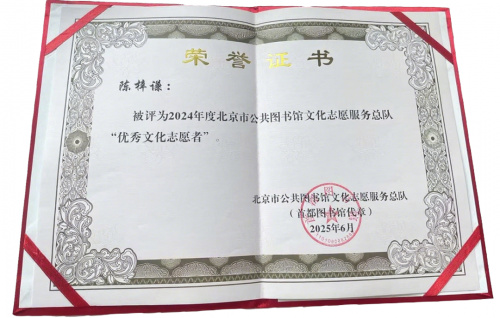 荣誉证书
陈梓谦：
被评为2024年度北京市公共图书馆文化志愿服务总队
“优秀文化志愿者”
北京市公共图书馆文化志愿服务总队
（首都图书馆代章）
2025年6月